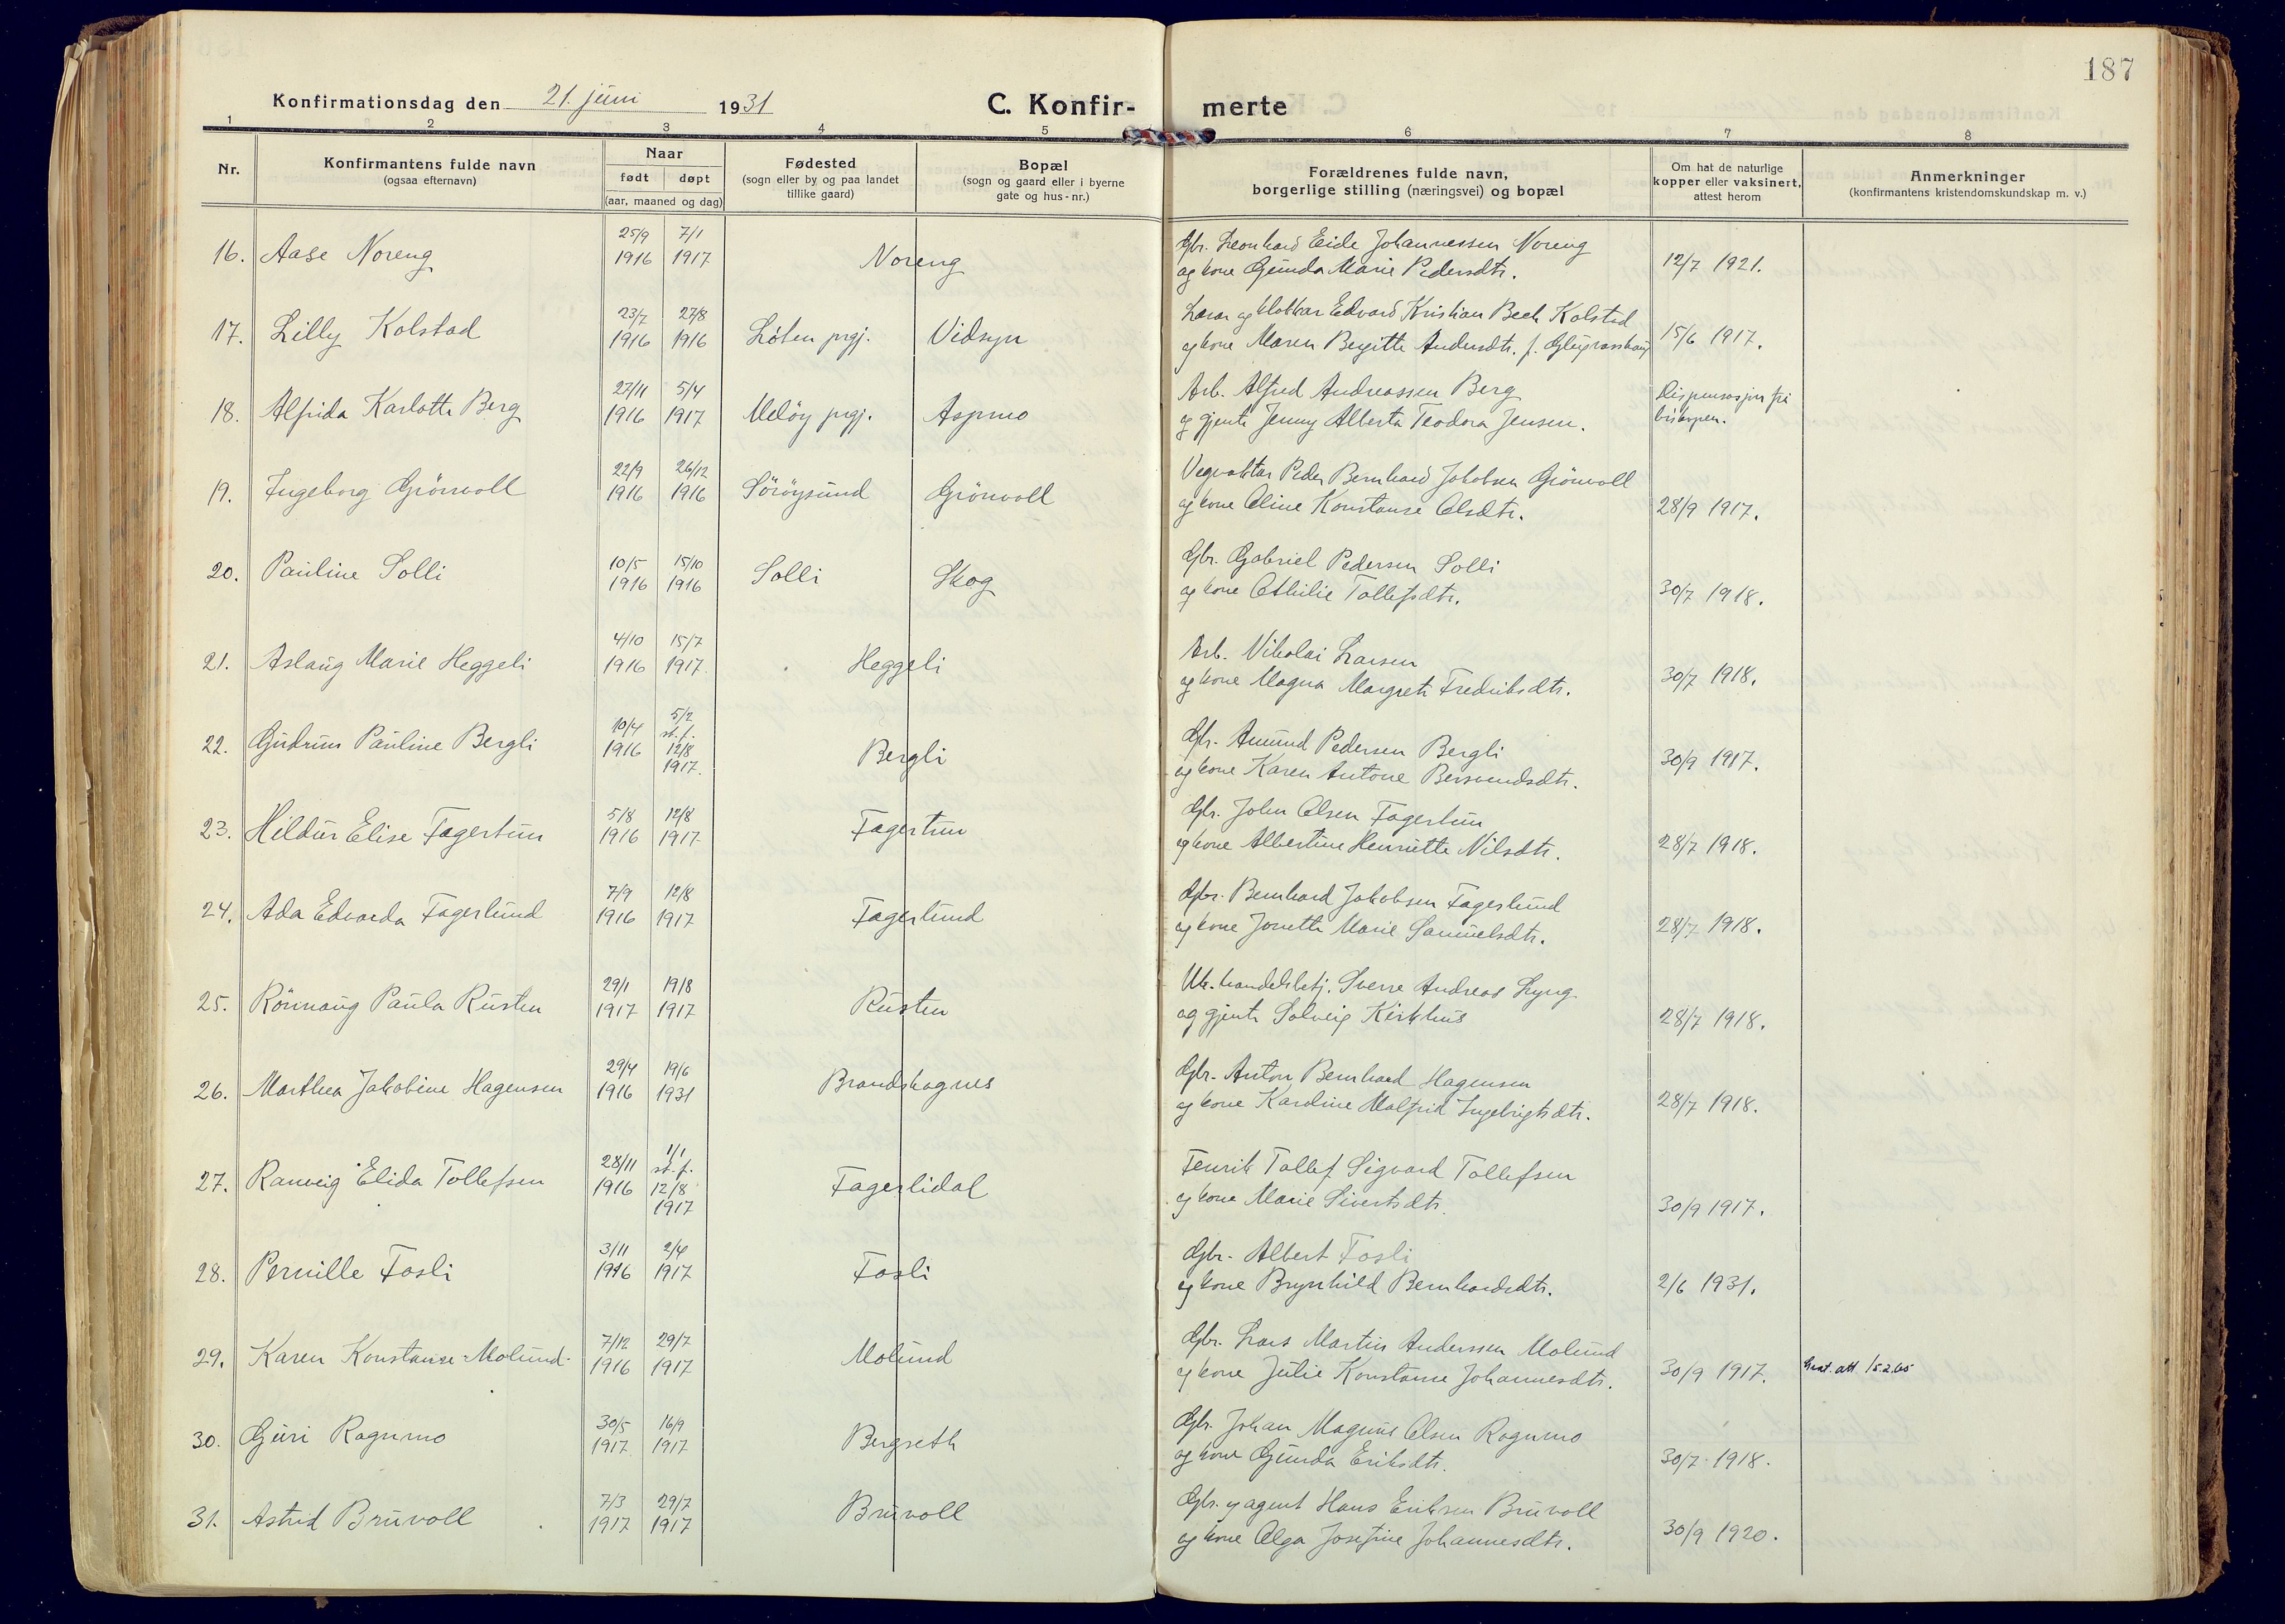 187
Konfirmationsdag den 21. juni 1931
C. Konfir- merte
1 2 3 4 5 6 7 8
Nr.
Konfirmantens fulde navn
(ogsaa efternavn)
Naar
født døpt
(aar, maaned og dag)
Fødested
(sogn eller by og paa landet
tillike gaard)
Bopæl
(sogn og gaard eller i byerne
gate og hus-nr.)
Forældrenes fulde navn,
borgerlige stilling (næringsvei) og bopæl
Om hat de naturlige
kopper eller vaksinert,
attest herom
Anmerkninger
(konfirmantens kristendomskundskap m. v.)
25/9 7/1 Gbr. Leonhard Eide Johannessen Noreng
16. Aase Noreng 1916 1917 Noreng og kone Gunda Marie Pedersdtr. 12/7 1921.
23/7 27/8 Lærar og klokkar Edvard Kristian Beck Kolstad
17. Lilly Kolstad 1916 1916 Löten prgj. Vidsyn og kone Maren Bergitte Andersdtr. f. 15/6 1917.
27/11 5/4 Arb. Alfred Andreassen Berg Dispensasjon frå
18. Alfrida Karlotte Berg 1916 1917 Melöy prgj. Aspmo og gjente Jenny Alberta Teodora Jensen. biskopen.
22/9 26/12 Vegvaktar Peder Bernhard Jakobsen Grönvoll
19. Ingeborg Grönvoll 1916 1916 Söröysund Grönvoll og kone Oline Konstanse Olsdtr. 28/9 1917.
10/5 15/10 Gbr. Gabriel Pedersen Solli
20. Pauline Solli 1916 1916 Solli Skog og kone Othilie Tollefsdtr. 30/7 1918.
4/10 15/7 Arb. Nikolai Larsen
21. Aslaug Marie Heggeli 1916 1917. Heggeli og kone Magna Margrete Fredriksdtr. 30/7 1918.
10/4 5/2 st. f. Gbr. Amund Pedersen Bergli
22. Gudrun Pauline Bergli 1916 12/8 1917. Bergli og kone Karen Antone Bersvendsdtr. 30/9 1917.
5/8 12/8 Gbr. John Olsen Fagertun
23. Hildur Elise Fagertun 1916 1917 Fagertun og kone Albertine Henriette Nilsdtr. 28/7 1918.
7/9 12/8 Gbr. Bernhard Jakobsen Fagerlund
24. Ada Edvarda Fagerlund 1916 1917 Fagerlund og kone Jonette Marie Samuelsdtr. 28/7 1918.
29/1 19/8 Uk. handelsbetj. Sverre Andreas Lyng
25. Rönnaug Paula Rusten 1917 1917 Rusten og gjente Solveig Kirkhus 28/7 1918.
29/4 19/6 Gbr. Anton Bernhard Hagensen
26. Marthea Jakobine Hagensen 1916 1931 Brandskognes og kone Karoline Malfrid Ingebrigtsdtr. 28/7 1918.
28/11 1/1 st. f. Fenrik Tollef Sigvard Tollefsen
27. Ranveig Elida Tollefsen 1916 12/8 1917 Fagerlidal og kone Marie Sivertsdtr. 30/9 1917.
3/11 2/4 Gbr. Albert Fosli
28. Pernille Fosli 1916 1917 Fosli og kone Brynhild Bernhardsdtr. 2/6 1931.
7/12 29/7 Gbr. Lars Martin Anderssen Molund
29. Karen Konstanse Molund 1916 1917 Molund og kone Julie Konstanse Johannesdtr. 30/9 1917. att. 15.2.65
30/5 16/9 Gbr. Johan Magnus Olsen Rognmo
30. Guri Rognmo 1917 1917 Bergseth og kone Gunda Eriksdtr. 30/7 1918.
7/3 29/7 Gbr. og agent Hans Eriksen Bruvoll
31. Astrid Bruvoll 1917 1917 Bruvoll og kone Olga Josefine Johannesdtr. 30/9 1920.